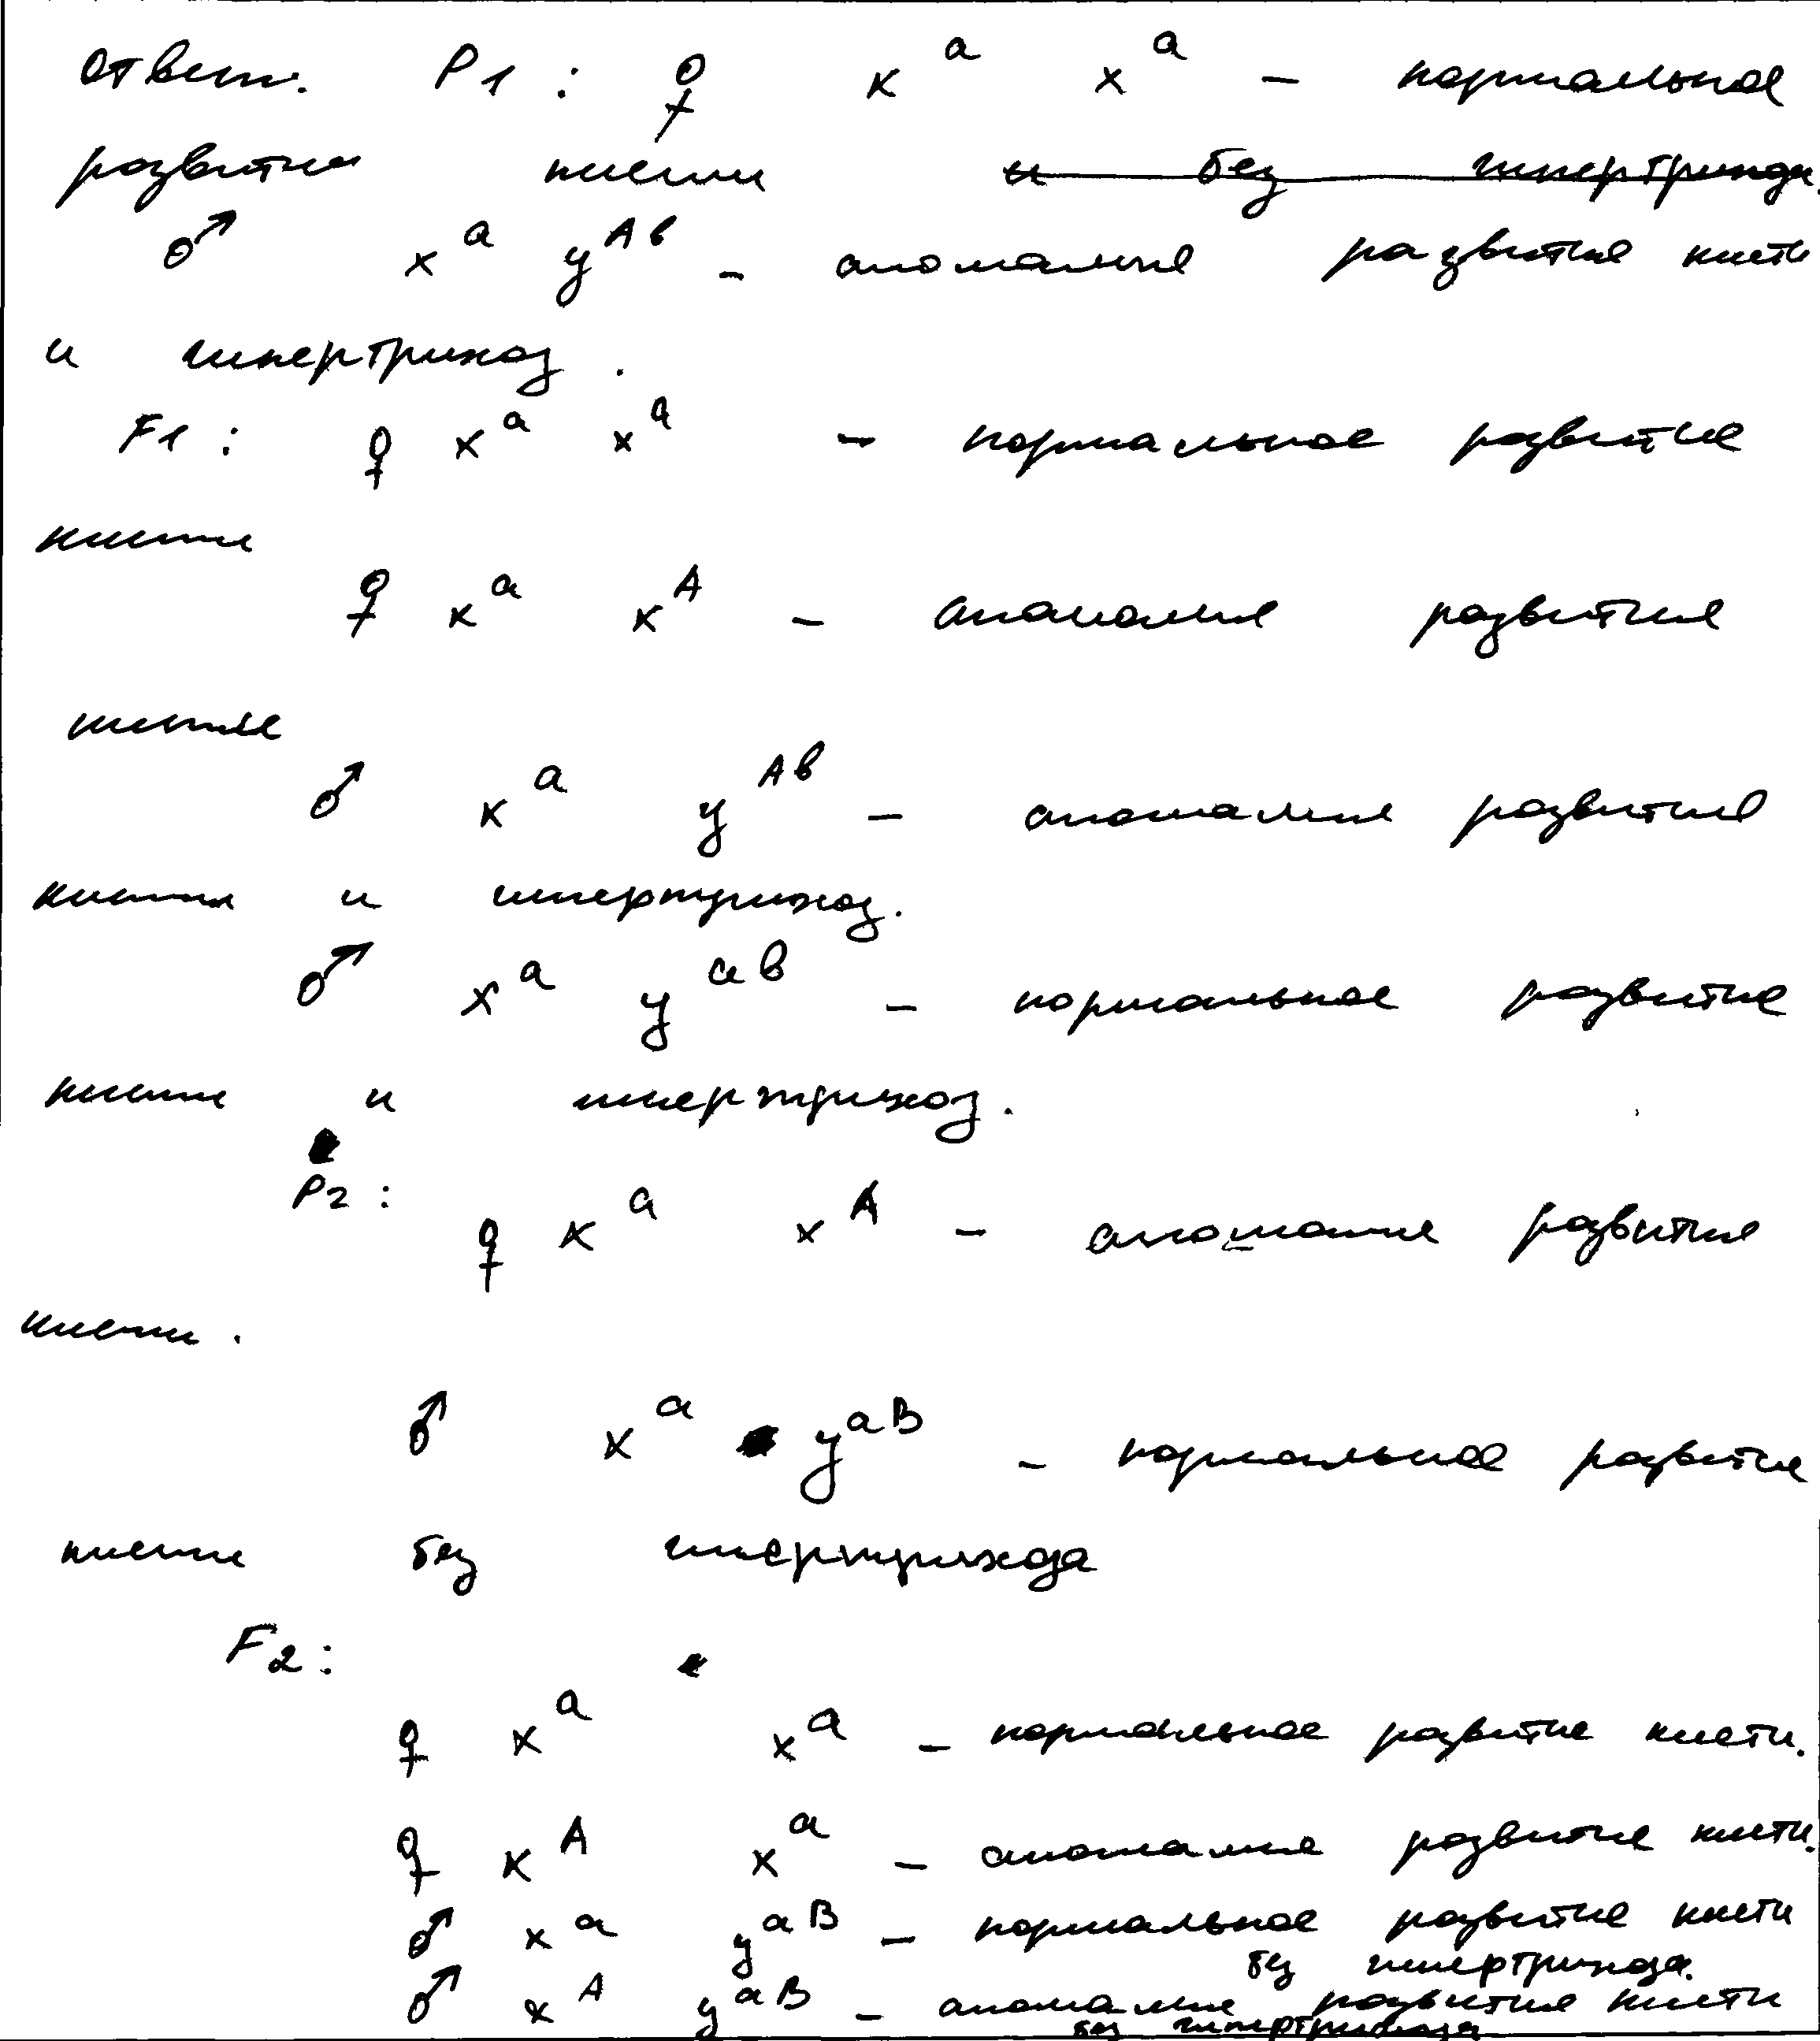 Ответ. P1 : ♀ x^a x^a – нормальное
развитие кисти и без гипертрихоза
♂ x^a y^Aв – аномалия развития кисти
и гипертрихоз.
F1 : ♀ x^a x^a – нормальное развитие
кисти
♀ x^a x^A – аномалия развития
кисти
♂ x^a y^Aв – аномалия развития
кисти и гипертрихоз.
♂ x^a y^aв – нормальное развитие
кисти и гипертрихоз.
P2 :
♀ x^a x^A – аномалия развития
кисти.
♂ x^a y^aB – нормальное развитие
кисти без гипертрихоза
F2 :
♀ x^a x^a – нормальное развитие кисти.
♀ x^A x^a – аномалия развития кисти.
♂ x^a y^aB – нормальное развитие кисти
без гипертрихоза.
♂ x^A y^aB – аномалия развития кисти
без гипертрихоза